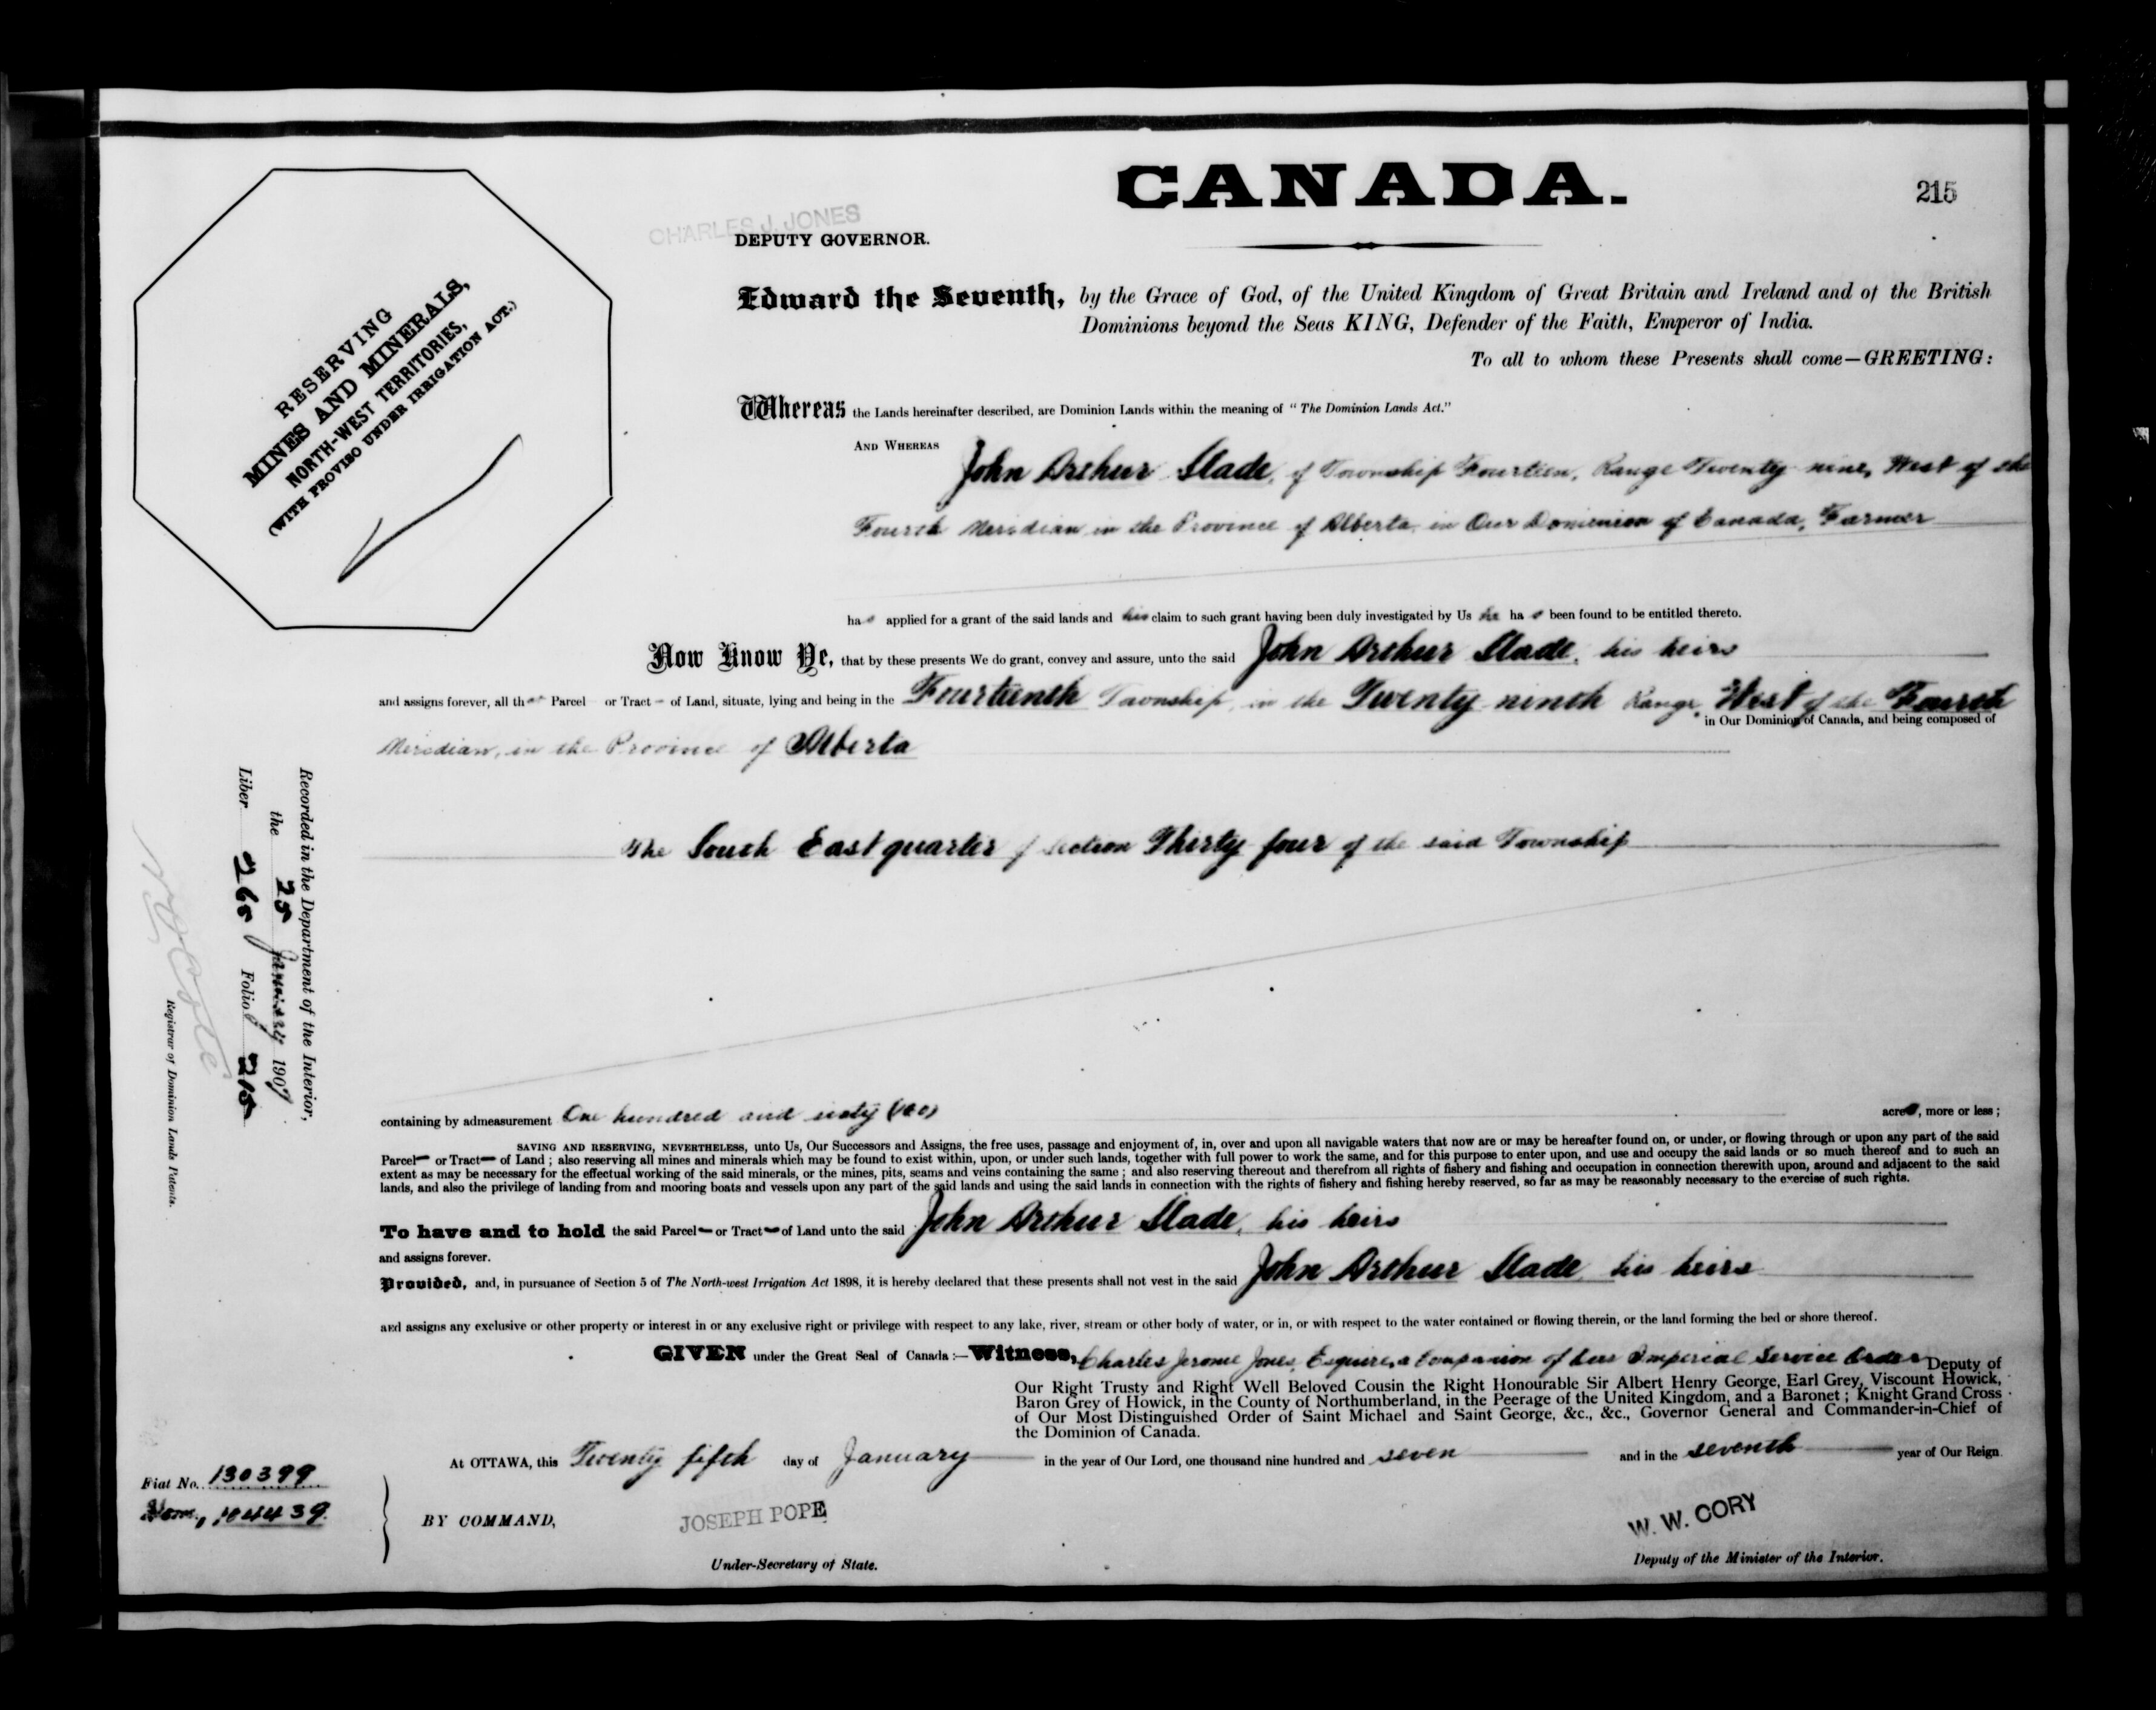 CANADA.
215
CHARLES J. JONES
DEPUTY GOVERNOR.
RESERVING
MINES AND MINERALS,
NORTH-WEST TERRITORIES,
(WITH PROVISO UNDER IRRIGATION ACT.)
Edward the Seventh, by the Grace of God, of the United Kingdom of Great Britain and Ireland and of the British
Dominions beyond the Seas KING, Defender of the Faith, Emperor of India.
To all to whom these Presents shall come—GREETING:
Whereas the Lands hereinafter described, are Dominion Lands within the meaning of "The Dominion Lands Act."
AND WHEREAS
John Arthur Slade, of Township Fourteen, Range Twenty nine, West of the
Fourth Meridian in the Province of Alberta in Our Dominion of Canada, Farmer
has applied for a grant of the said lands and his claim to such grant having been duly investigated by Us he has been found to be entitled thereto.
Now Know Ye, that by these presents We do grant, convey and assure, unto the said John Arthur Slade, his heirs
and assigns forever, all that Parcel or Tract of Land, situate, lying and being in the Fourteenth Township, in the Twenty ninth Range, West of the Fourth
in Our Dominion of Canada, and being composed of
Meridian, in the Province of Alberta
The South East quarter of Section Thirty four of the said Township
Recorded in the Department of the Interior,
the 25 January 1907
Liber 265 Folio 215
Registrar of Dominion Lands Patents.
containing by admeasurement One hundred and sixty (160) acres, more or less;
SAVING AND RESERVING, NEVERTHELESS, unto Us, Our Successors and Assigns, the free uses, passage and enjoyment of, in, over and upon all navigable waters that now are or may be hereafter found on, or under, or flowing through or upon any part of the said
Parcel or Tract of Land; also reserving all mines and minerals which may be found to exist within, upon, or under such lands, together with full power to work the same, and for this purpose to enter upon, and use and occupy the said lands or so much thereof and to such an
extent as may be necessary for the effectual working of the said minerals, or the mines, pits, seams and veins containing the same; and also reserving thereout and therefrom all rights of fishery and fishing and occupation in connection therewith upon, around and adjacent to the said
lands, and also the privilege of landing from and mooring boats and vessels upon any part of the said lands and using the said lands in connection with the rights of fishery and fishing hereby reserved, so far as may be reasonably necessary to the exercise of such rights.
To have and to hold the said Parcel or Tract of Land unto the said John Arthur Slade, his heirs
and assigns forever.
Provided, and, in pursuance of Section 5 of The North-west Irrigation Act 1898, it is hereby declared that these presents shall not vest in the said John Arthur Slade his heirs
and assigns any exclusive or other property or interest in or any exclusive right or privilege with respect to any lake, river, stream or other body of water, or in, or with respect to the water contained or flowing therein, or the land forming the bed or shore thereof.
GIVEN under the Great Seal of Canada:—Witness, Charles Jerome Jones, Esquire, a Companion of Our Imperial Service Order Deputy of
Our Right Trusty and Right Well Beloved Cousin the Right Honourable Sir Albert Henry George, Earl Grey, Viscount Howick,
Baron Grey of Howick, in the County of Northumberland, in the Peerage of the United Kingdom, and a Baronet; Knight Grand Cross
of Our Most Distinguished Order of Saint Michael and Saint George, &c., &c., Governor General and Commander-in-Chief of
the Dominion of Canada.
At OTTAWA, this Twenty fifth day of January in the year of Our Lord, one thousand nine hundred and seven and in the seventh year of Our Reign
Fiat No. 130399
Hom, 104439
BY COMMAND,
JOSEPH POPE
Under-Secretary of State.
W. W. CORY
Deputy of the Minister of the Interior.